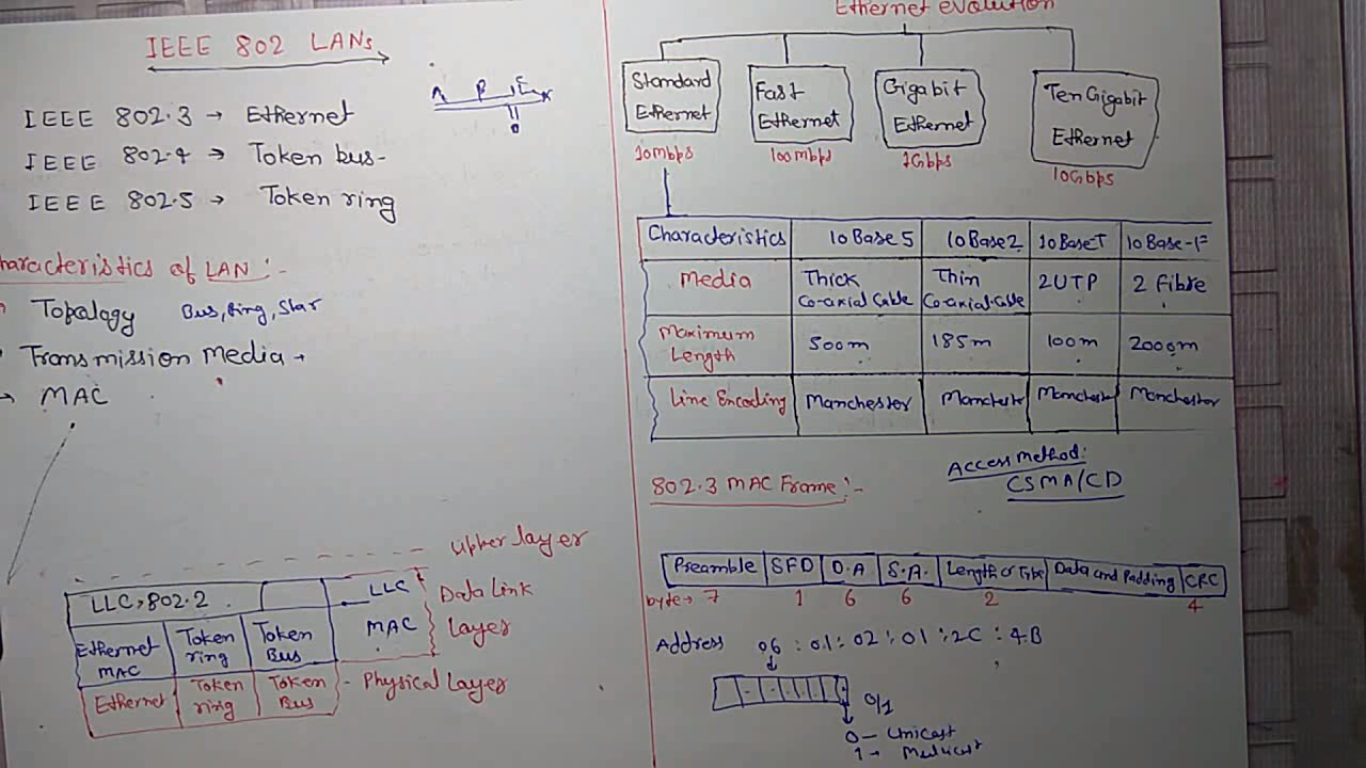 IEEE 802 LANs
IEEE 802.3 → Ethernet
IEEE 802.4 → Token bus-
IEEE 802.5 → Token ring
haracteristics of LAN :-
Topalagy Bus, Ring, Star
Transmission Media →
→ MAC
Upper layer
LLC, 802.2 LLC
Data Link
Layer
Ethernet MAC Token ring Token Bus MAC
Ethernet Token ring Token Bus - Physical Layer
Ethernet evolution
Standard Ethernet Fast Ethernet Gigabit Ethernet Ten Gigabit Ethernet
10mbps 100mbps 1Gbps 10Gbps
Characteristics 10 Base 5 10 Base 2 10 Base T 10 Base-F
Media Thick Co-axial Cable Thin Co-axial-Cable 2 UTP 2 Fibre
Maximum Length 500m 185m 100m 2000m
Line Encoding Manchester Manchester Manchester Manchester
Access Method:
CSMA/CD
802.3 MAC Frame :-
Preamble SFD D.A S.A. Length or Type Data and Padding CRC
byte → 7 1 6 6 2 4
Address 06 : 01 : 02 : 01 : 2C : 4B
0/1
0 - Unicast
1 → Multicast